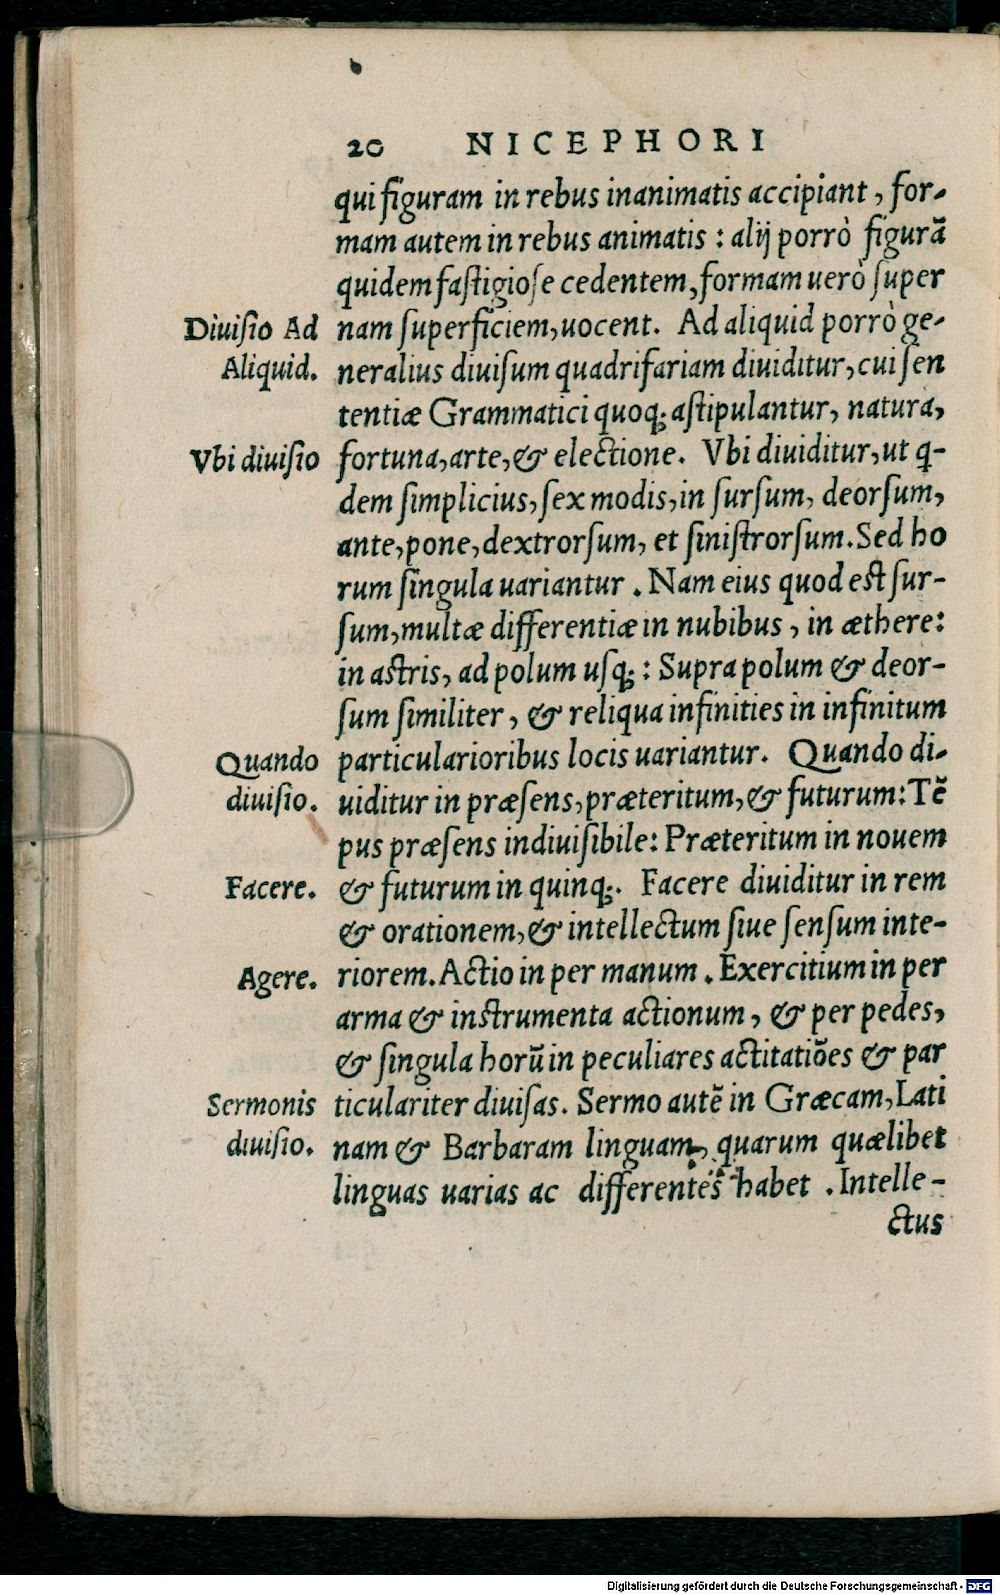 20 NICEPHORI
qui figuram in rebus inanimatis accipiant, for-
mam autem in rebus animatis : alij porrò figurā
quidem fastigiose cedentem, formam uerò super
Diuisio Ad nam superficiem, uocent. Ad aliquid porrò ge-
Aliquid. neralius diuisum quadrifariam diuiditur, cui sen
tentiæ Grammatici quoq; astipulantur, natura,
Vbi diuisio fortuna, arte, & electione. Vbi diuiditur, ut q-
dem simplicius, sex modis, in sursum, deorsum,
ante, pone, dextrorsum, et sinistrorsum. Sed ho
rum singula uariantur . Nam eius quod est sur-
sum, multæ differentiæ in nubibus , in æthere:
in astris, ad polum usq; : Supra polum & deor-
sum similiter , & reliqua infinities in infinitum
Quando particularioribus locis uariantur. Quando di-
diuisio. uiditur in præsens, præteritum, & futurum: Tē
pus præsens indiuisibile: Præteritum in nouem
Facere. & futurum in quinq;. Facere diuiditur in rem
& orationem, & intellectum siue sensum inte-
Agere. riorem. Actio in per manum . Exercitium in per
arma & instrumenta actionum , & per pedes,
& singula horū in peculiares actitatiōes & par
Sermonis ticulariter diuisas. Sermo autē in Græcam, Lati
diuisio. nam & Barbaram linguam, quarum quælibet
linguas uarias ac differentes habet . Intelle-
ctus
Digitalisierung gefördert durch die Deutsche Forschungsgemeinschaft - DFG